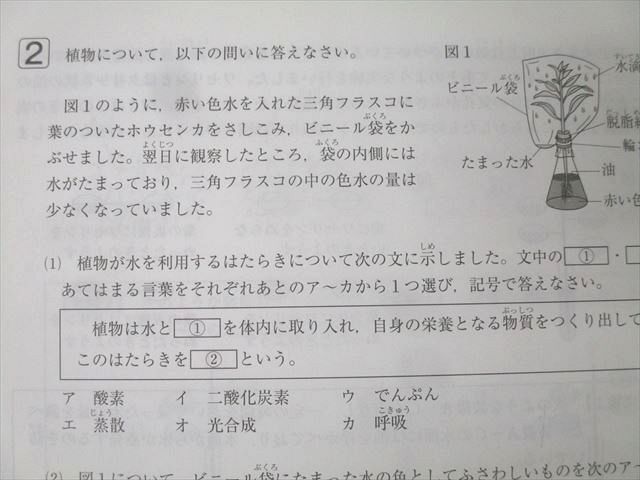 2 植物について，以下の問いに答えなさい。
図1
図1のように，赤い色水を入れた三角フラスコに
葉のついたホウセンカをさしこみ，ビニール袋をか
ぶせました。翌日に観察したところ，袋の内側には
水がたまっており，三角フラスコの中の色水の量は
少なくなっていました。
ふくろ
よくじつ
ふくろ
ふくろ
ビニール袋
水滴
脱脂綿
輪ゴ
たまった水
油
赤い色
(1) 植物が水を利用するはたらきについて次の文に示しました。文中の ① ・
しめ
あてはまる言葉をそれぞれあとのア～カから1つ選び，記号で答えなさい。
植物は水と ① を体内に取り入れ，自身の栄養となる物質をつくり出して
ぶっしつ
このはたらきを ② という。
ア 酸素 イ 二酸化炭素 ウ でんぷん
エ 蒸散 オ 光合成 カ 呼吸
じょう
こきゅう
(2) 図1について，ビニール袋にたまった水の色としてふさわしいものを次のア～
ぶくろ